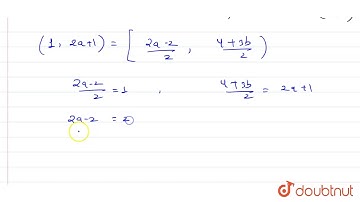 (1, 2a+1) = [ 2a-2/2 , 4+3b/2 )
2a-2/2 = 1 , 4+3b/2 = 2a+1
2a-2 = 2
doubtnut